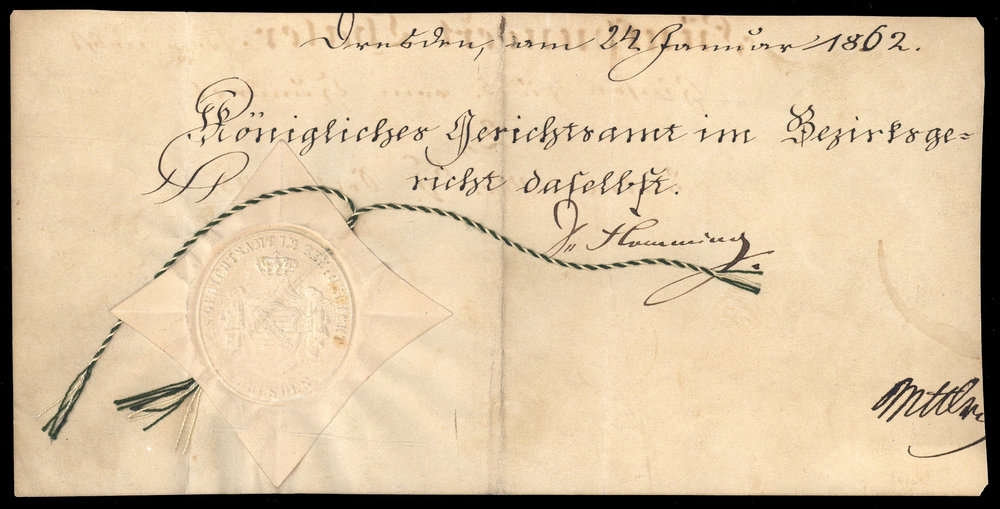 Dresden, am 24 Januar 1862.
Königliches Gerichtsamt im Bezirksge=
richt daselbst.
Dr Flemming
GERICHTSAMT IM BEZIRKSGERICHT
DRESDEN